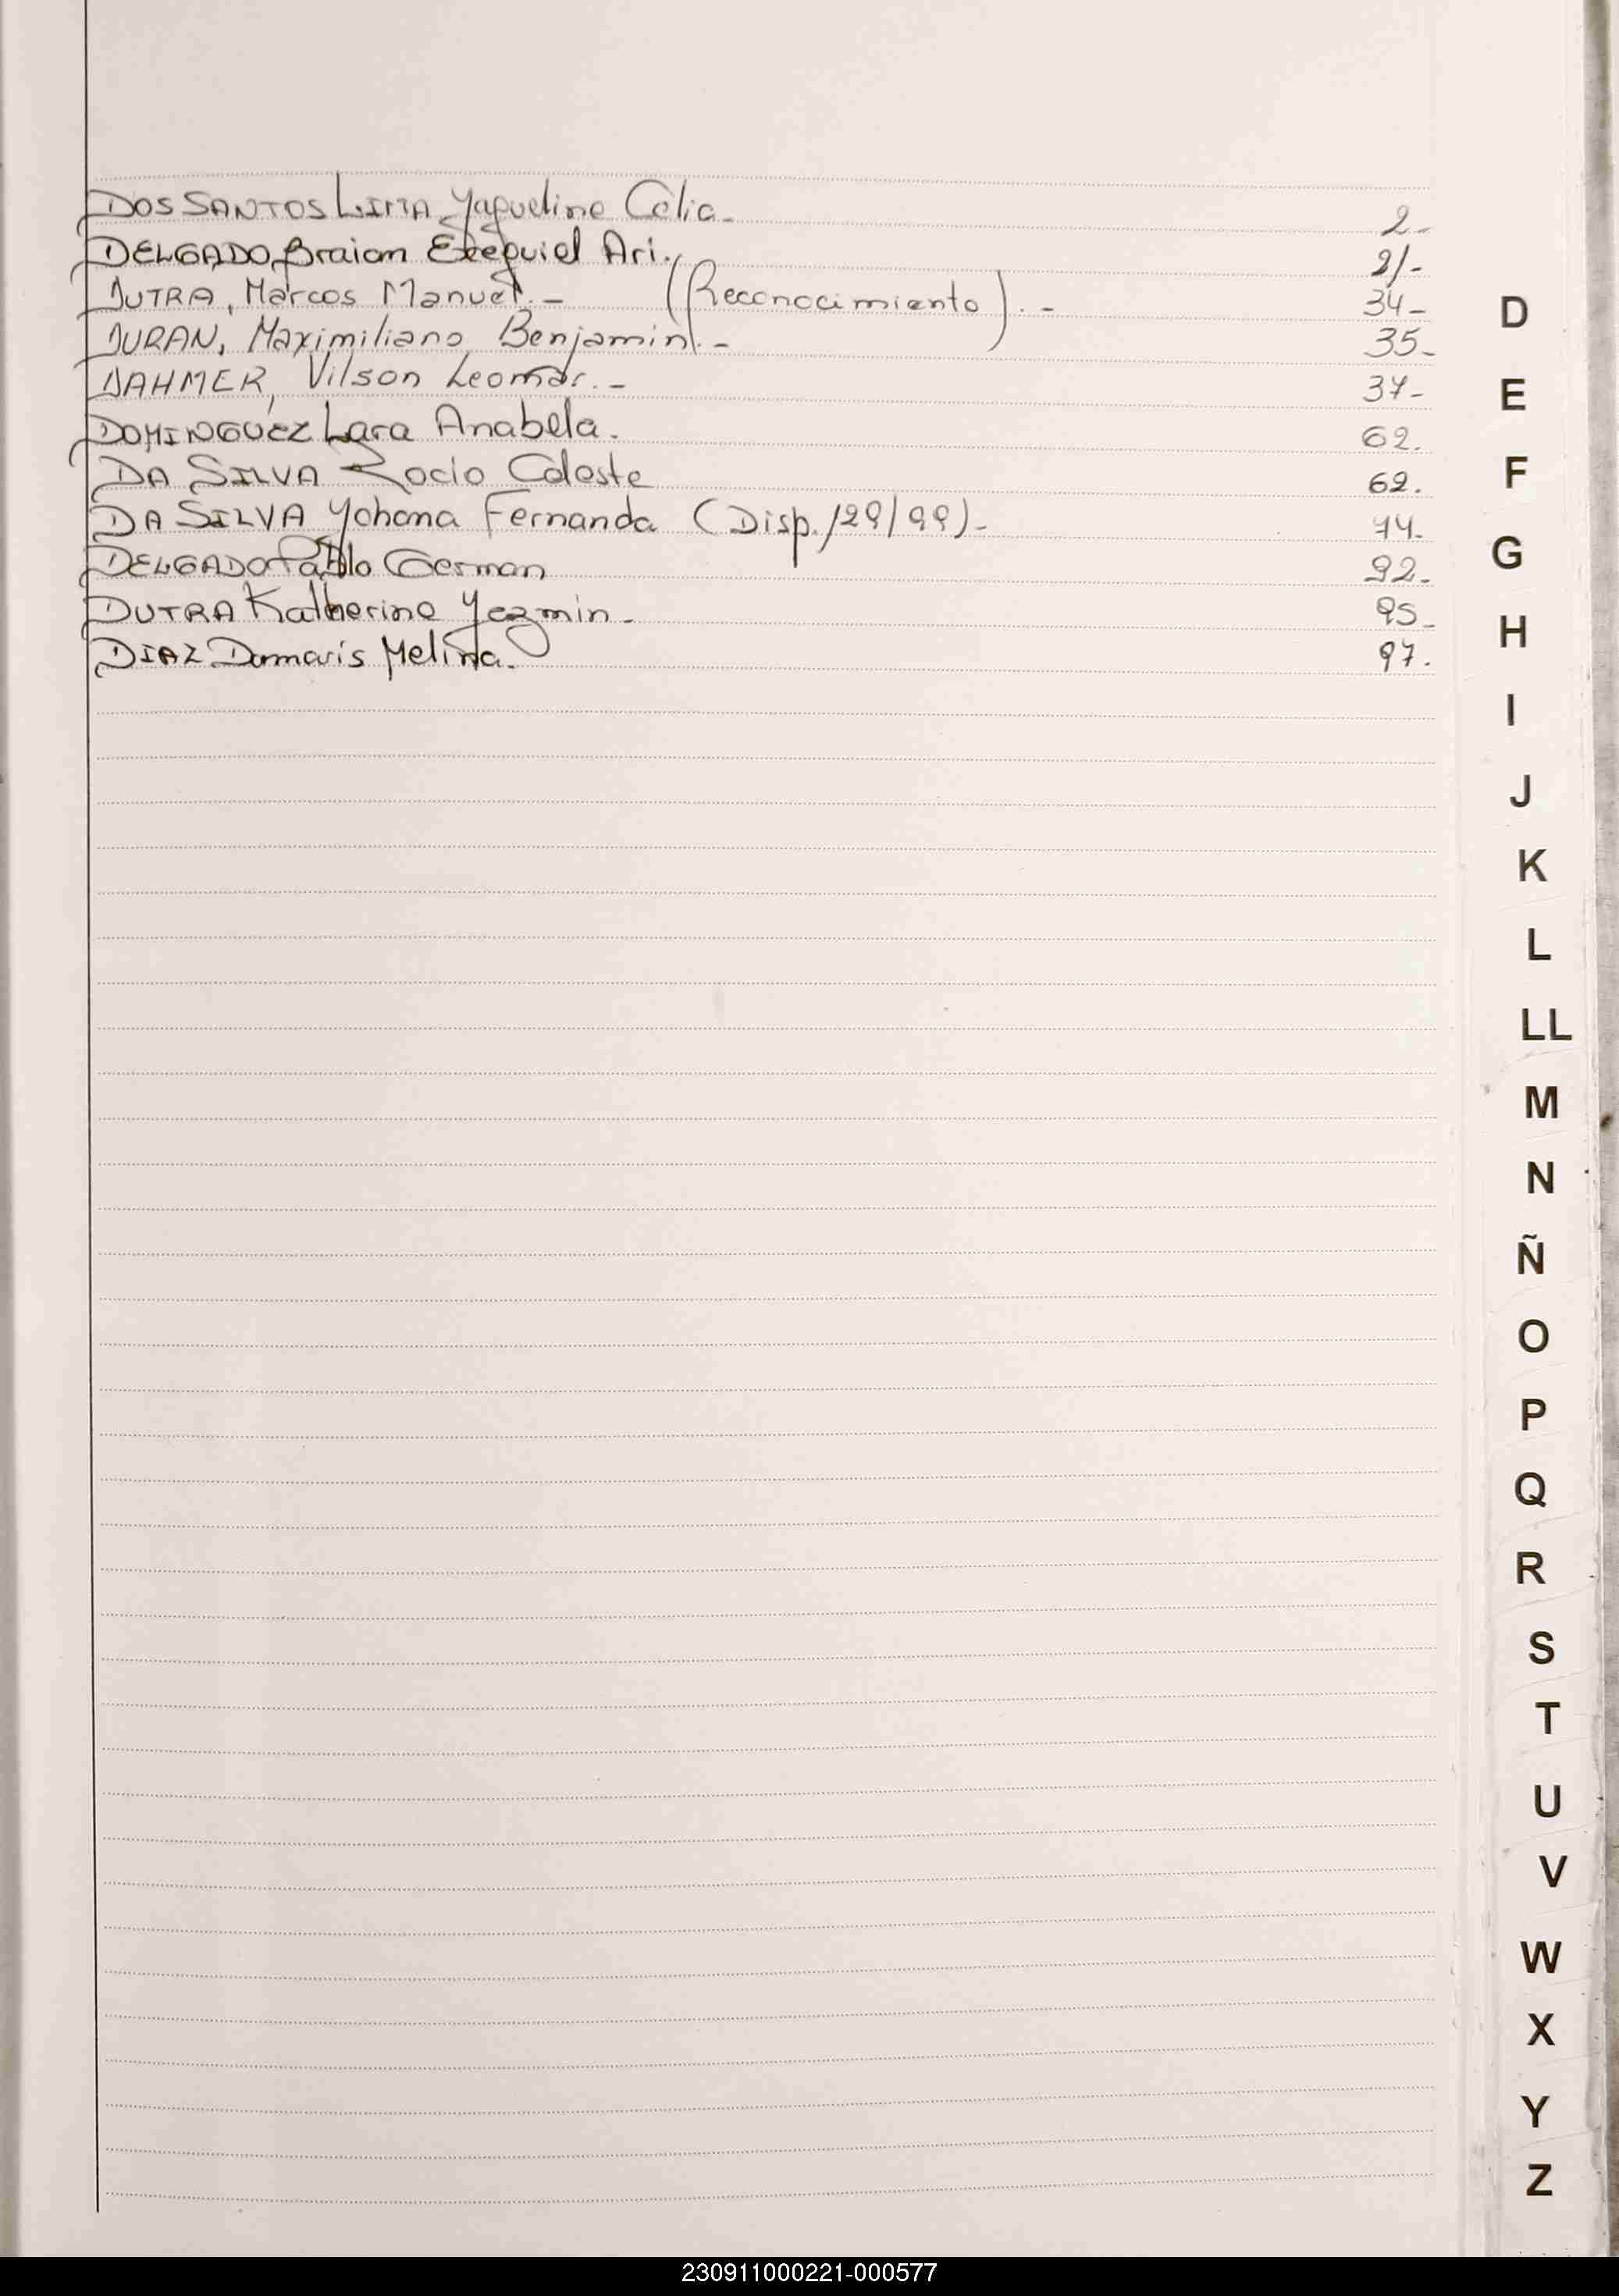 DOS SANTOS LIMA Yaqueline Celia - 2-
DELGADO Braian Ezequiel Ari. 2/-
DUTRA, Marcos Manuel.- (Reconocimiento).- 34-
DURAN, Maximiliano Benjamin.- 35-
DAHMER, Vilson Leomar.- 37-
DOMINGUEZ Lara Anabela. 62.
DA SILVA Rocio Celeste 62.
DA SILVA Yohana Fernanda (Disp. 129/99)- 74-
DELGADO Pablo German 92-
DUTRA Katherine Yezmin - 95-
DIAZ Damaris Melina. 97.
D
E
F
G
H
I
J
K
L
LL
M
N
Ñ
O
P
Q
R
S
T
U
V
W
X
Y
Z
230911000221-000577